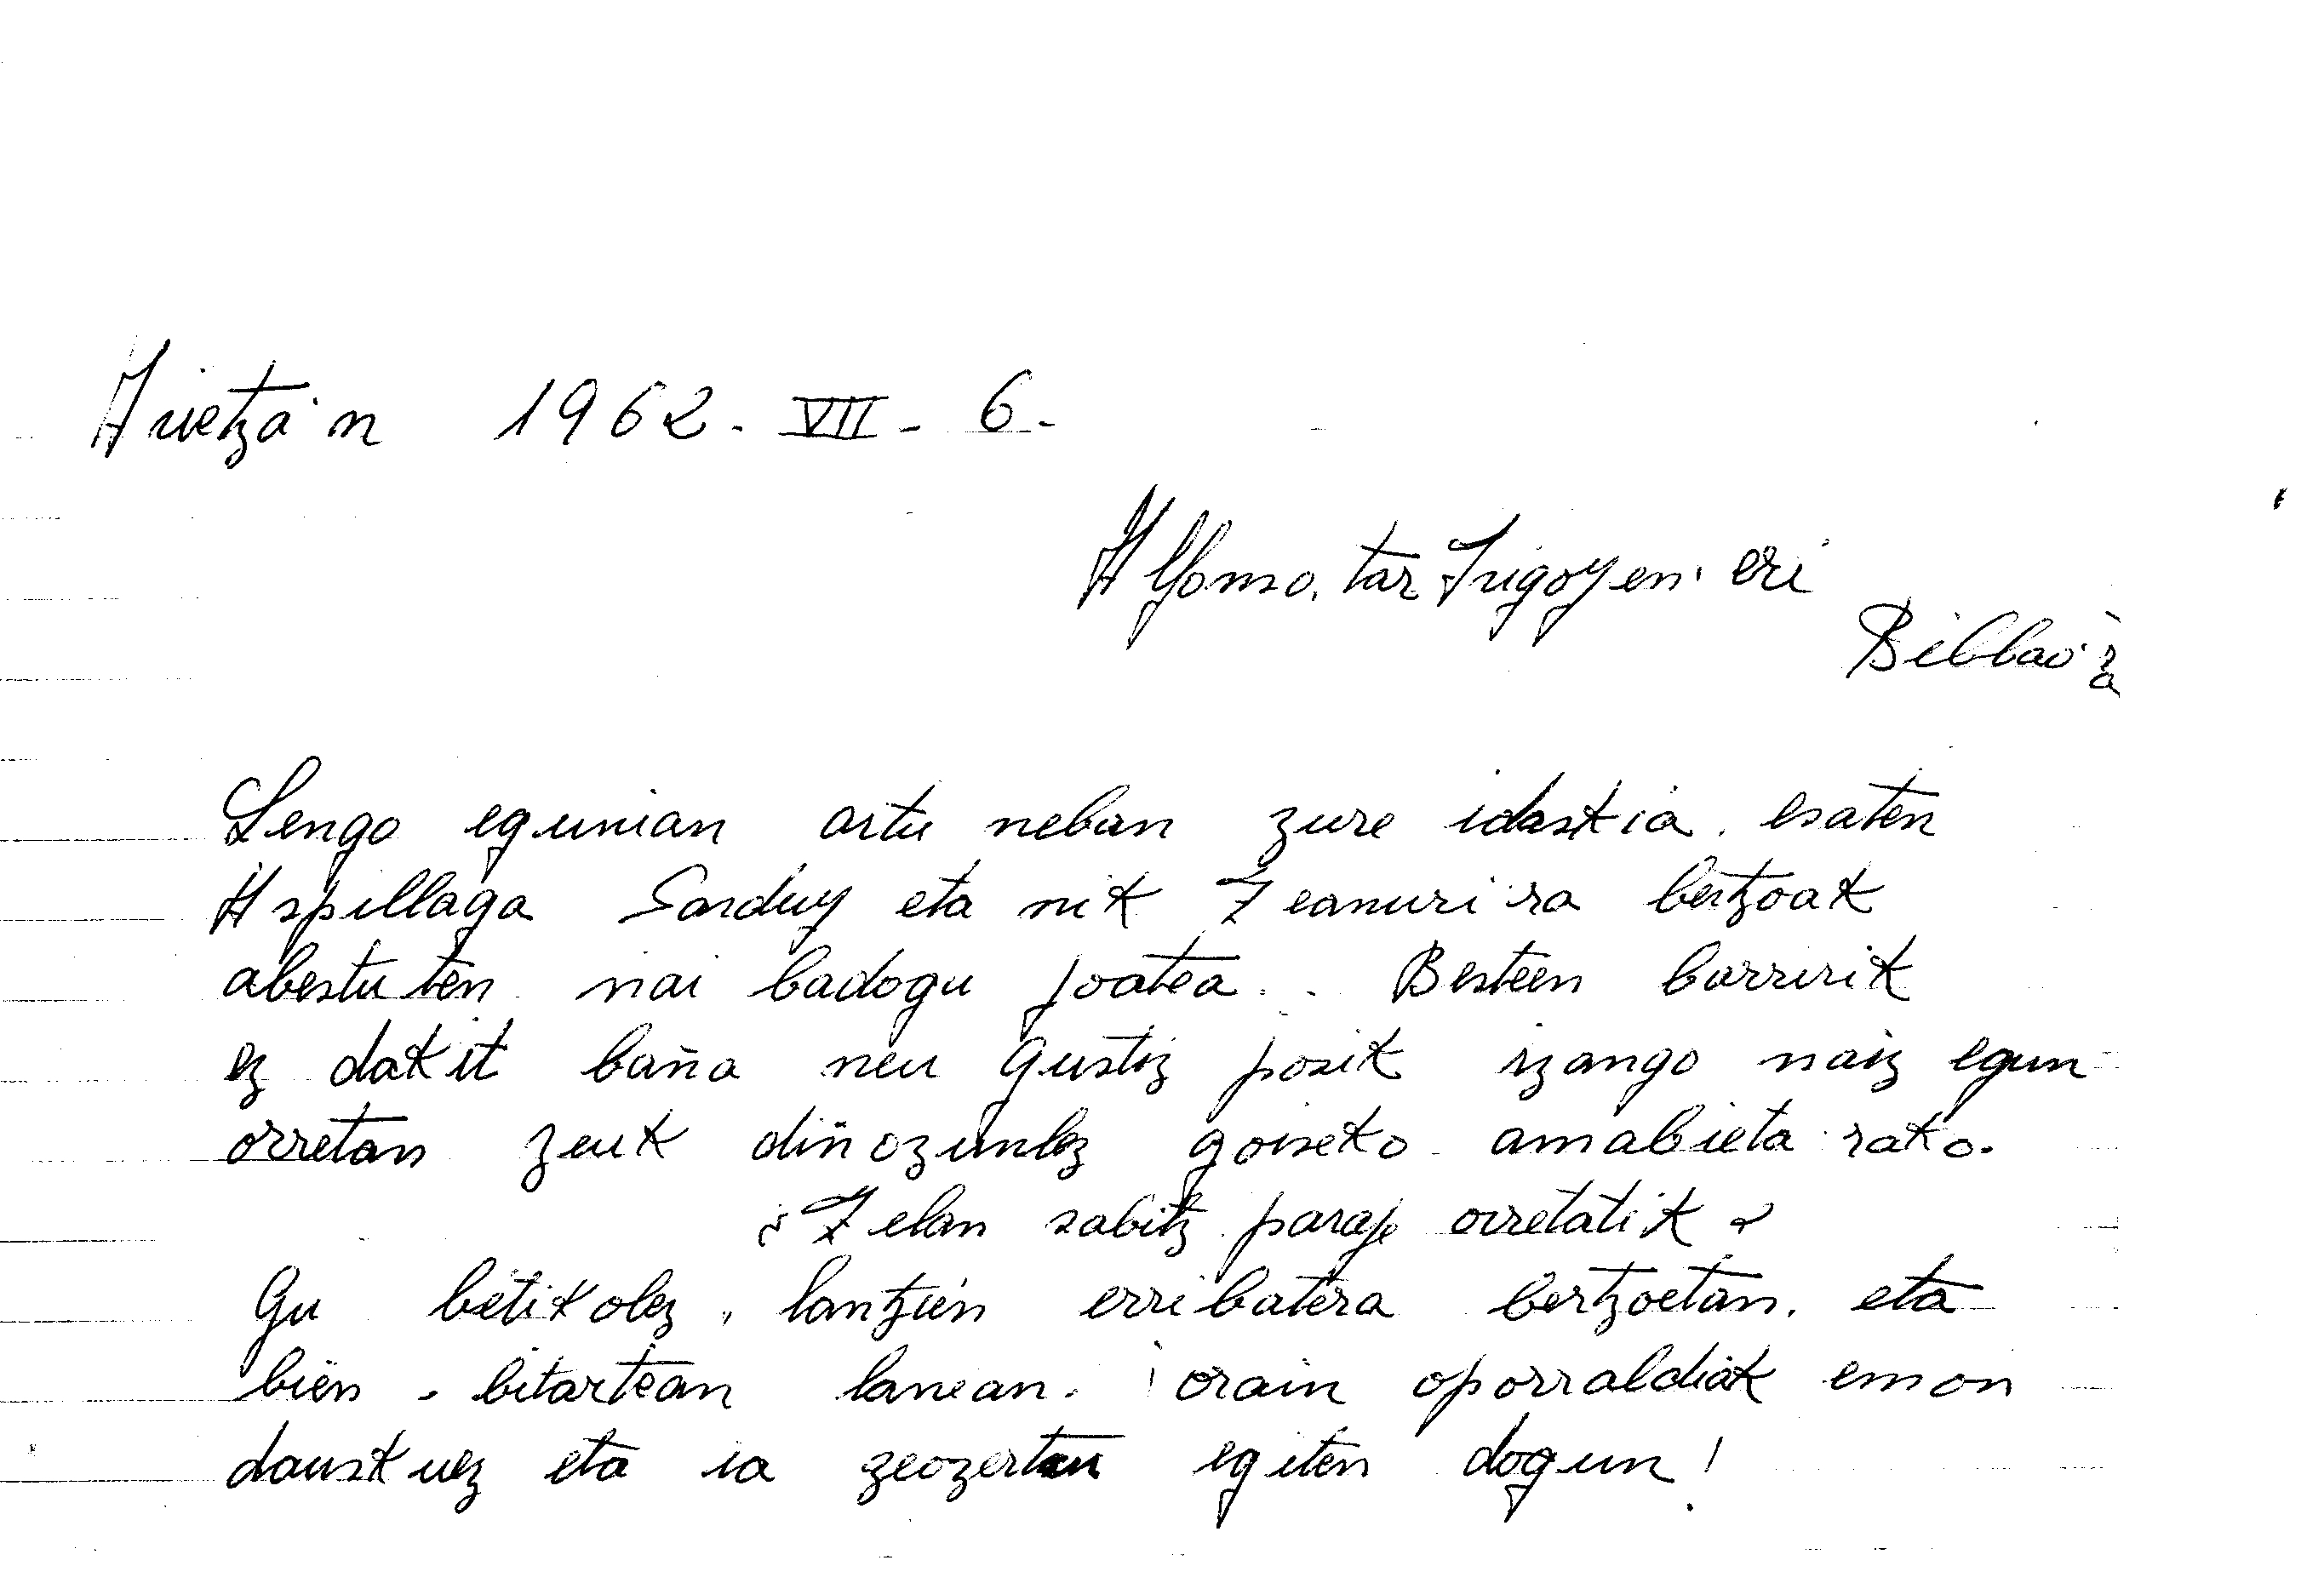 Arietza'n 1962. VII - 6.
Alfonso.tar Irigoyen'eri
Bilbao'ra
Lengo egunian artu neban zure idaskia. esaten
Aspillaga Sarduy eta nik Zeanuri'ra bertzoak
abestuten nai badogu joatea.. Besteen barririk
ez dakit baña neu gustiz posik izango naiz egun
orretan zeuk diñozunlez goiseko amabieta rako.
¿Zelan zabitz paraje orretatik?
Gu betikolez, lantzien erribatera bertzoetan. eta
bien - bitartean lanean. ¡orain oporraldiak emon
dauskuez eta ia zeozertan egiten dogun!